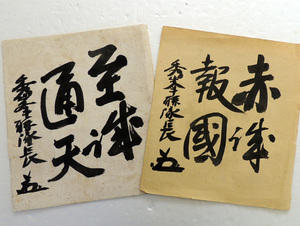 赤誠
報國
秀峯隊長
至誠
通天
秀峯隊長